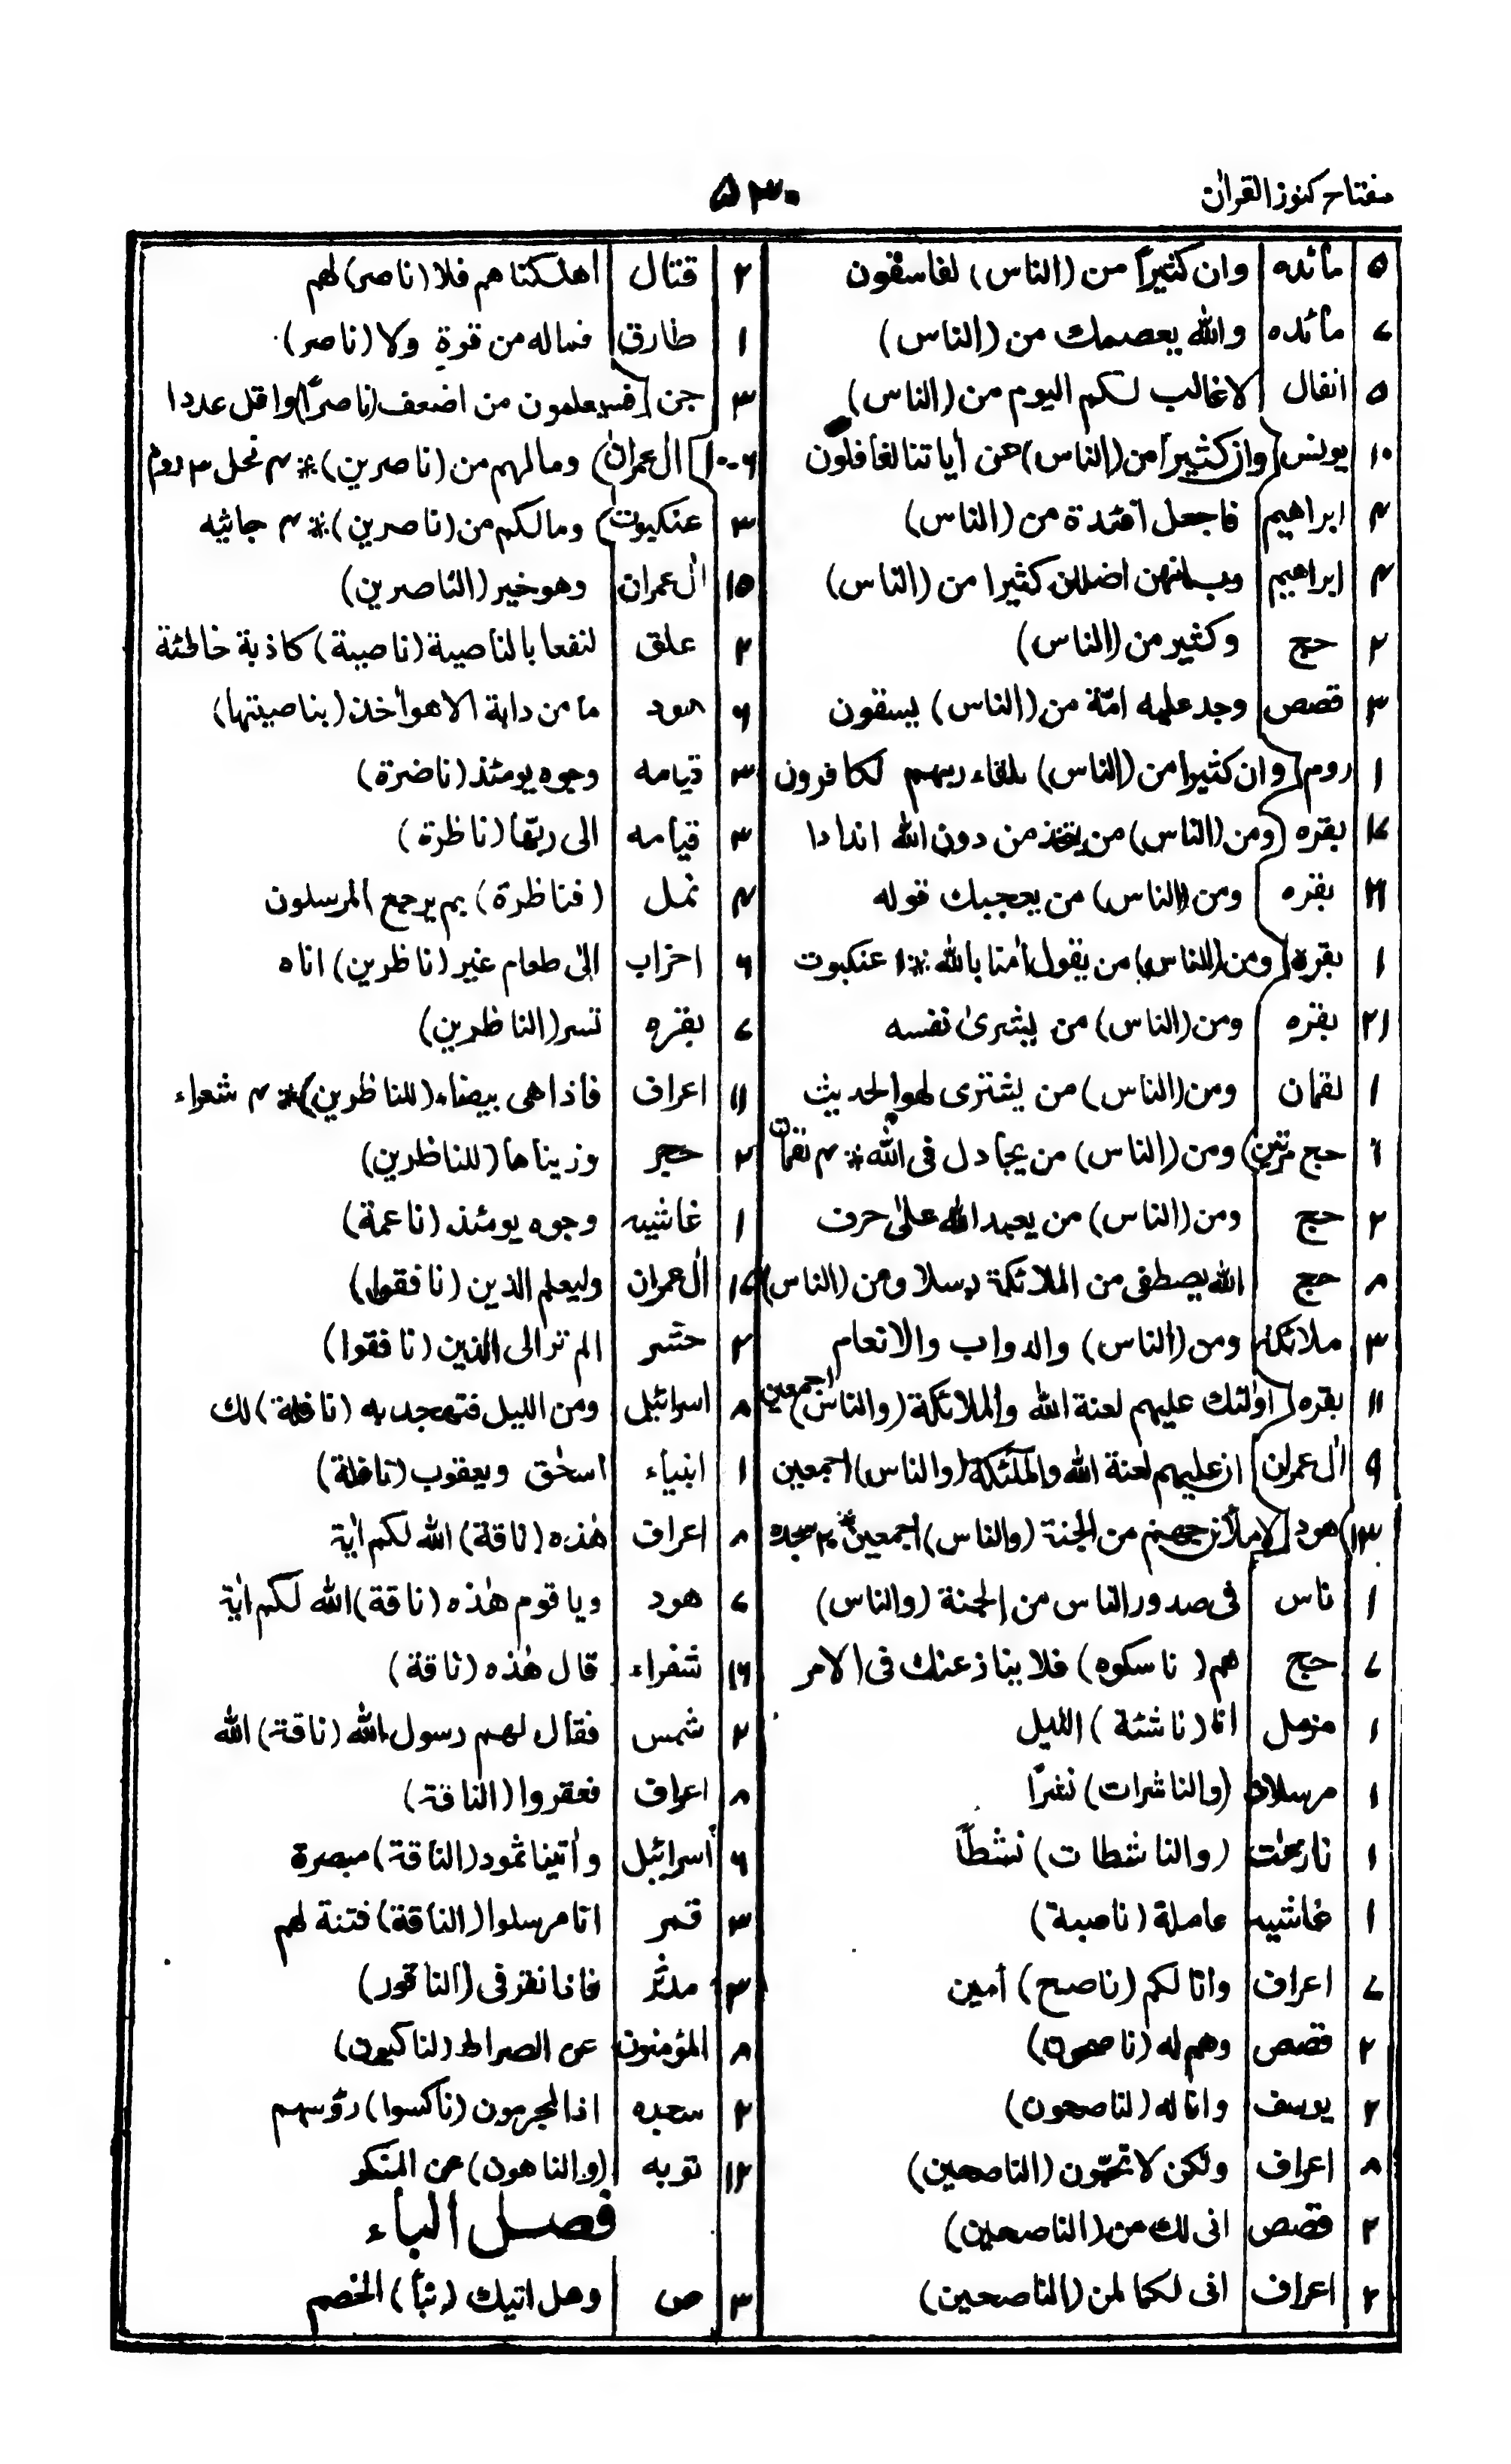 مفتاح کنوز القرآن
۵۳۰
۵ مائده وان کثیراً من (الناس) لفاسقون
۷ مائده والله یعصمك من (الناس)
۵ انفال لاغالب لکم الیوم من (الناس)
۱۰ یونس وان کثیرا من (الناس) عن أیاتنا لغافلون
۴ ابراهیم فاجعل افئدة من (الناس)
۴ ابراهیم رب انهن اضللن کثیرا من (الناس)
۲ حج وکثیر من (الناس)
۳ قصص وجد علیه امّة من (الناس) یسقون
۱ روم وان کثیرا من (الناس) بلقاء ربهم لکافرون
۱۷ بقره ومن (الناس) من یتخذ من دون الله اندادا
۲۱ بقره ومن (الناس) من یعجبك قوله
۱ بقره ومن (الناس) من یقول أمنا بالله * ۱ عنکبوت
۲۱ بقره ومن (الناس) من یشری نفسه
۱ لقمان ومن (الناس) من یشتری لهو الحدیث
۱ حج مرتین ومن (الناس) من یجادل فی الله * ۳ لقمان
۲ حج ومن (الناس) من یعبد الله علی حرف
۸ حج الله یصطفی من الملائکة رسلا ومن (الناس)
۳ ملائکه ومن (الناس) والدواب والانعام
۱۱ بقره اولئك علیهم لعنة الله والملائکة (والناس) اجمعین
۹ اٰل عمران ان علیهم لعنة الله والملئکة (والناس) اجمعین
۱۳ هود لاملأن جهنم من الجنة (والناس) اجمعین * ۲ سجده
۱ ناس فی صدور الناس من الجنة (والناس)
۷ حج هم (ناسکوه) فلا ینازعنك فی الامر
۱ مزمل انا (ناشئة) اللیل
۱ مرسلات (والناشرات) نشراً
۱ نازعٰت (والناشطات) نشطاً
۱ غاشیه عاملة (ناصبة)
۷ اعراف وانا لکم (ناصح) أمین
۲ قصص وهم له (ناصحون)
۲ یوسف وانا له (لناصحون)
۸ اعراف ولکن لا تحبّون (الناصحین)
۲ قصص انی لك من (الناصحین)
۲ اعراف انی لکما لمن (الناصحین)
۲ قتال اهلکنا هم فلا (ناصر) لهم
۱ طارق فماله من قوة ولا (ناصر)
۳ جن فسیعلمون من اضعف (ناصراً) واقل عددا
۶-۱۰ اٰل عمران ومالهم من (ناصرین) * ۴ نحل ۳ روم
۳ عنکبوت ومالکم من (ناصرین) * ۴ جاثیه
۱۵ اٰل عمران وهو خیر (الناصرین)
۲ علق لنفعا بالناصیة (ناصیة) کاذبة خاطئة
۶ هود ما من دابة الا هو أخذ (بناصیتها)
۳ قیامه وجوه یومئذ (ناضرة)
۳ قیامه الی ربّها (ناظرة)
۴ نمل (فناظرة) بم یرجع المرسلون
۶ احزاب الیٰ طعام غیر (ناظرین) اناه
۷ بقره تسر (الناظرین)
۱۱ اعراف فاذا هی بیضاء (للناظرین) * ۴ شعراء
۲ حجر وزیناها (للناظرین)
۱ غاشیه وجوه یومئذ (ناعمة)
۱۷ اٰل عمران ولیعلم الذین (نافقوا)
۲ حشر الم تر الی الذین (نافقوا)
۸ اسرائیل ومن اللیل فتهجد به (نافلة) لك
۱ انبیاء اسحٰق ویعقوب (نافلة)
۸ اعراف هٰذه (ناقة) الله لکم اٰیة
۷ هود ویا قوم هٰذه (ناقة) الله لکم اٰیة
۱۶ شعراء قال هٰذه (ناقة)
۲ شمس فقال لهم رسول الله (ناقة) الله
۸ اعراف فعقروا (الناقة)
۶ أسرائیل وأتینا ثمود (الناقة) مبصرة
۳ قمر انا مرسلوا (الناقة) فتنة لهم
۳ مدثر فاذا نقر فی (الناقور)
۸ المؤمنون عن الصراط (لناکبون)
۲ سجده اذ المجرمون (ناکسوا) رؤسهم
۱۲ توبه (والناهون) عن المنکر
فصل الباء
۳ ص وهل اتیك (نبأ) الخصم